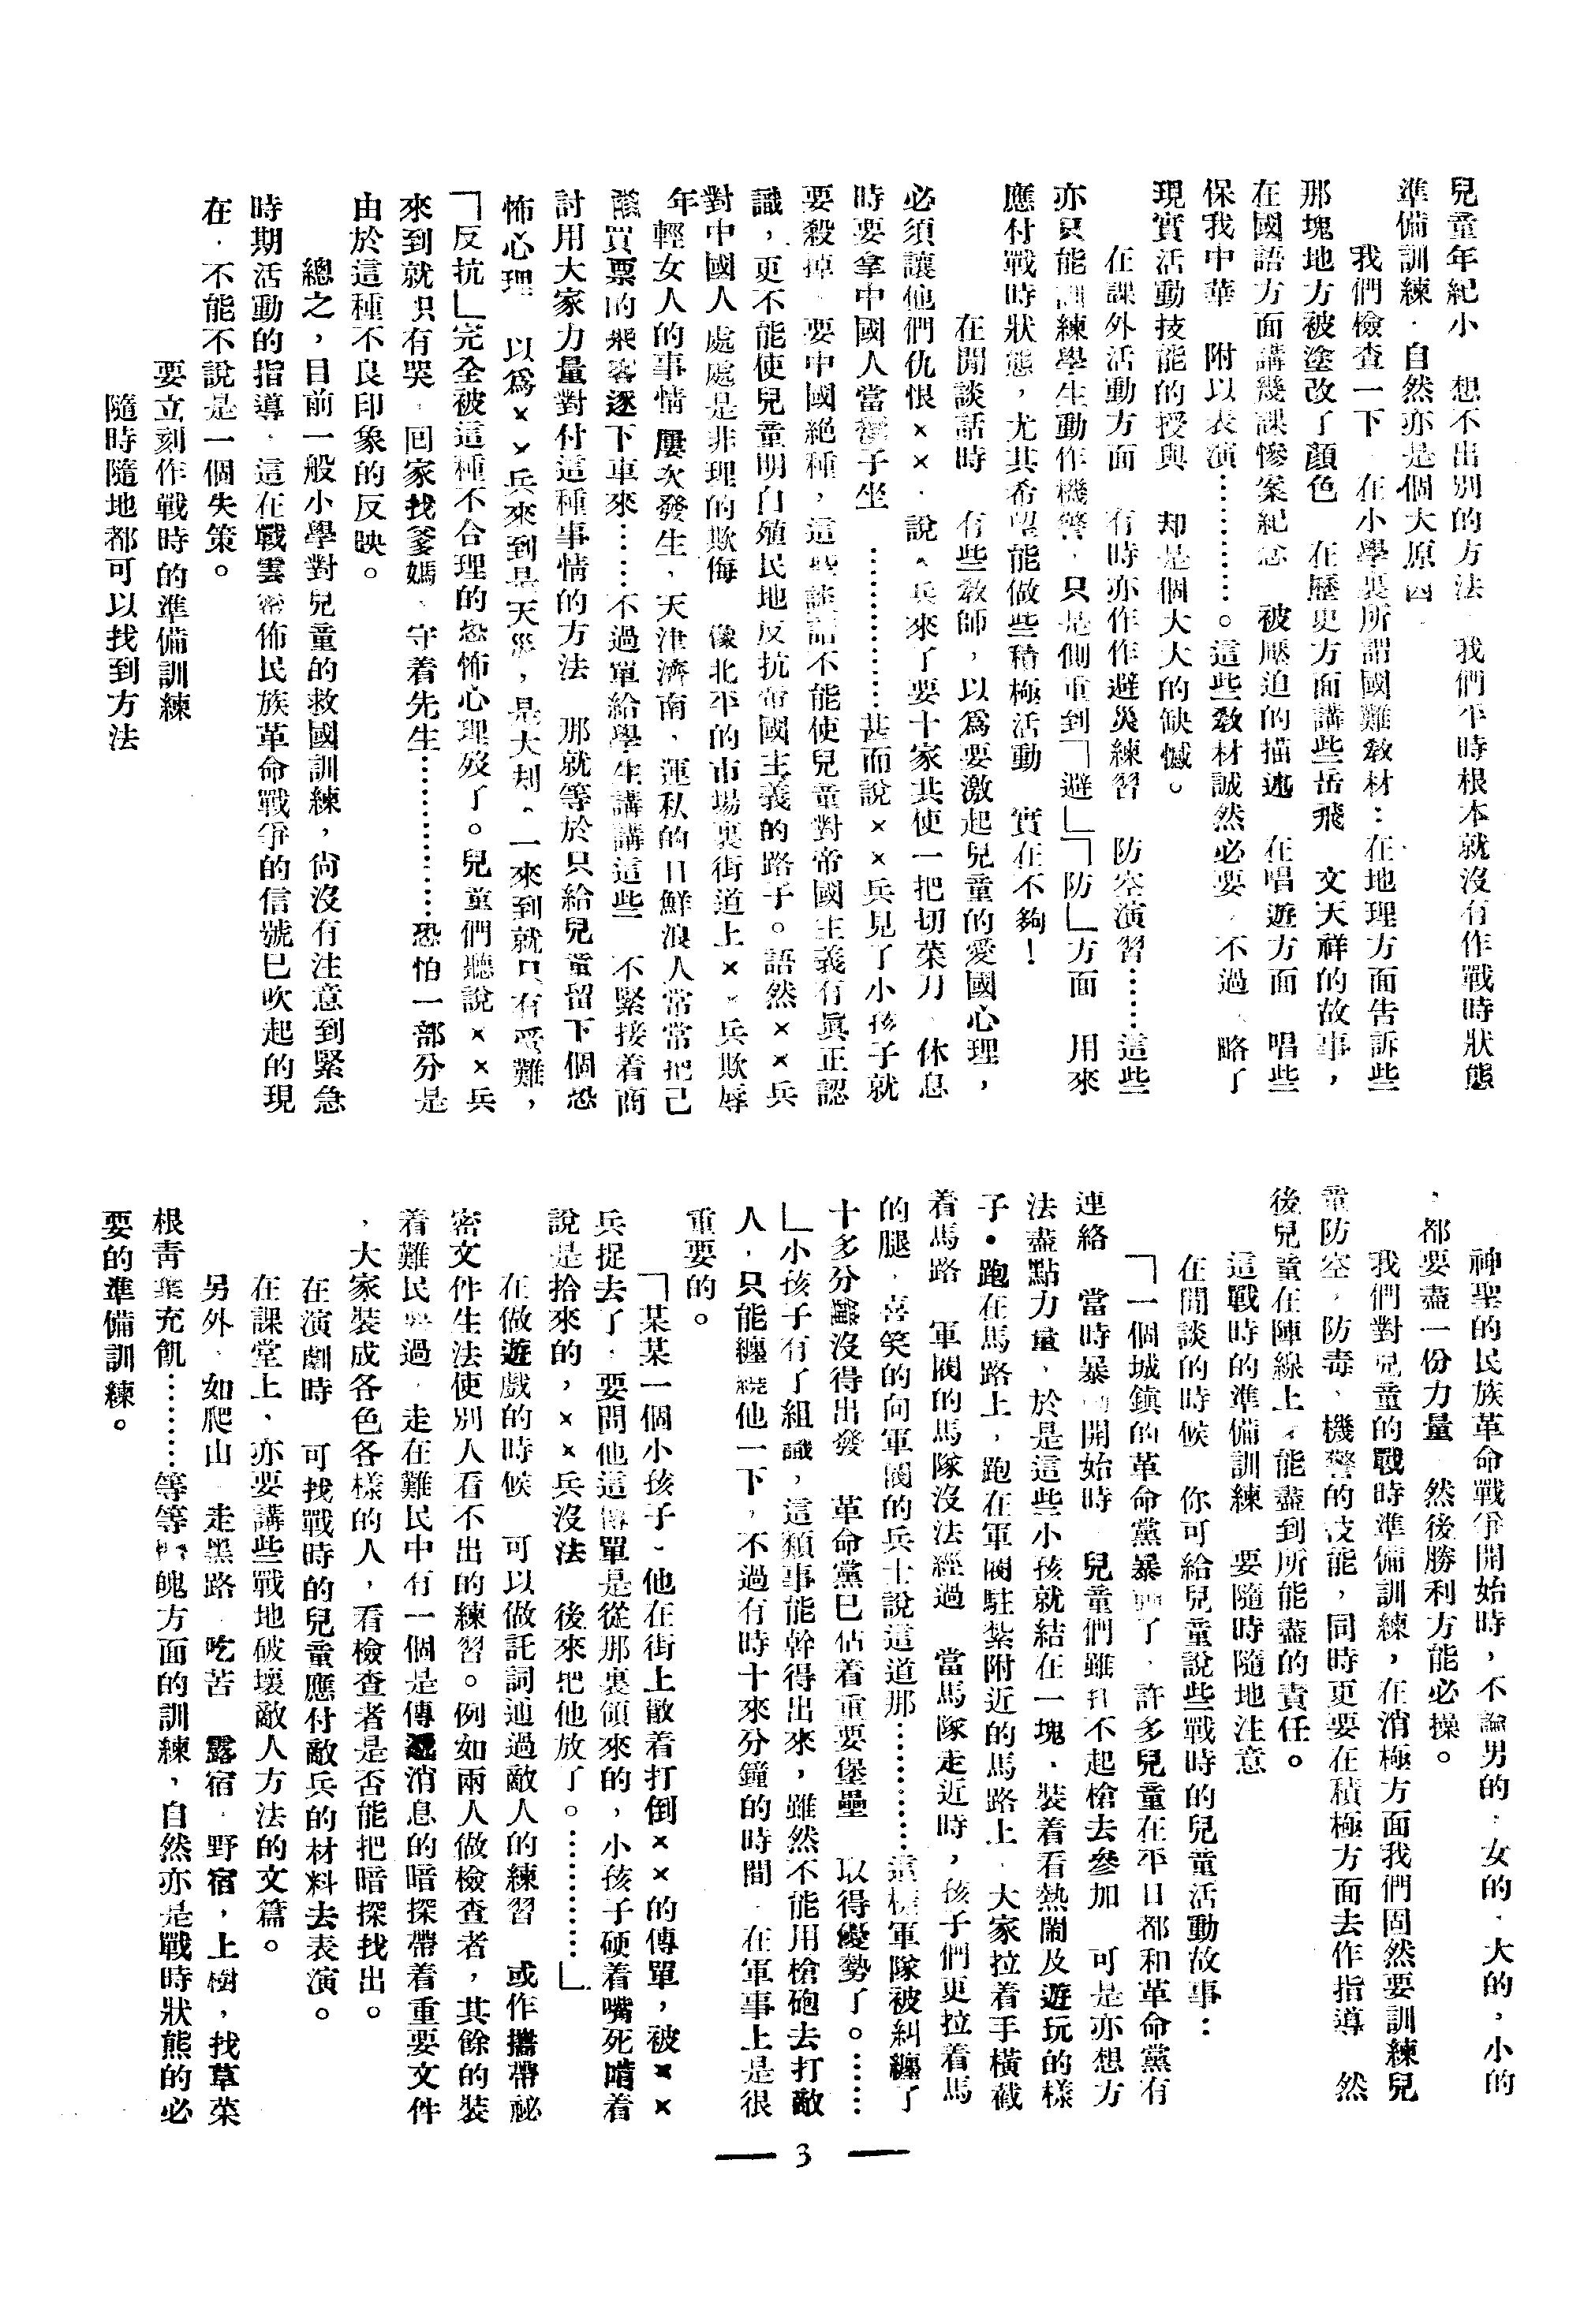 兒童年紀小　想不出別的方法　我們平時根本就沒有作戰時狀態
準備訓練．自然亦是個大原因．
我們檢查一下　在小學裏所謂國難教材：在地理方面告訴些
那塊地方被塗改了顏色　在歷史方面講些岳飛　文天祥的故事，
在國語方面講幾課慘案紀念　被壓迫的描述　在唱遊方面　唱些
保我中華　附以表演…………。這些教材誠然必要．不過、略了
現實活動技能的授與　却是個大大的缺憾。
在課外活動方面　有時亦作作避災練習　防空演習……這些
亦只能訓練學生動作機警，只是側重到「避」「防」方面　用來
應付戰時狀態，尤其希望能做些積極活動　實在不夠！
在閒談話時　有些教師，以爲要激起兒童的愛國心理，
必須讓他們仇恨××．說×兵來了要十家共使一把切菜刀、休息
時要拿中國人當凳子坐　……………甚而說××兵見了小孩子就
要殺掉．要中國絕種，這些談話不能使兒童對帝國主義有眞正認
識，更不能使兒童明白殖民地反抗帝國主義的路子。語然××兵
對中國人處處是非理的欺侮　像北平的市場裏街道上××兵欺辱
年輕女人的事情　屢次發生，天津濟南、運私的日鮮浪人常常把已
買票的乘客逐下車來……不過單給學生講講這些　不緊接着商
討用大家力量對付這種事情的方法　那就等於只給兒童留下個恐
怖心理　以爲××兵來到是天災，是大刦、一來到就只有受難，
「反抗」完全被這種不合理的恐怖心理歿了。兒童們聽說××兵
來到就只有哭．回家找爹媽、守着先生……………恐怕一部分是
由於這種不良印象的反映。
總之，目前一般小學對兒童的救國訓練，尙沒有注意到緊急
時期活動的指導．這在戰雲密佈民族革命戰爭的信號已吹起的現
在．不能不說是一個失策。
要立刻作戰時的準備訓練
隨時隨地都可以找到方法
神聖的民族革命戰爭開始時，不論男的．女的．大的，小的
，都要盡一份力量　然後勝利方能必操。
我們對兒童的戰時準備訓練，在消極方面我們固然要訓練兒
童防空，防毒、機警的技能，同時更要在積極方面去作指導　然
後兒童在陣線上才能盡到所能盡的責任。
這戰時的準備訓練　要隨時隨地注意
在閒談的時候　你可給兒童說些戰時的兒童活動故事：
「一個城鎮的革命黨暴動了．許多兒童在平日都和革命黨有
連絡　當時暴動開始時　兒童們雖扛不起槍去參加　可是亦想方
法盡點力量，於是這些小孩就結在一塊．裝着看熱鬧及遊玩的樣
子．跑在馬路上，跑在軍閥駐紮附近的馬路上．大家拉着手橫截
着馬路　軍閥的馬隊沒法經過　當馬隊走近時，孩子們更拉着馬
的腿．喜笑的向軍閥的兵士說這道那…………這樣軍隊被糾纏了
十多分鐘沒得出發　革命黨已佔着重要堡壘　以得優勢了。……
」小孩子有了組識，這類事能幹得出來，雖然不能用槍砲去打敵
人．只能纏繞他一下，不過有時十來分鐘的時間．在軍事上是很
重要的。
「某某一個小孩子、他在街上散着打倒××的傳單，被××
兵捉去了．要問他這傳單是從那裏領來的，小孩子硬着嘴死啃着
說是拾來的，××兵沒法　後來把他放了。…………」
在做遊戲的時候　可以做託詞通過敵人的練習　或作攜帶祕
密文件生法使別人看不出的練習。例如兩人做檢查者，其餘的裝
着難民走過．走在難民中有一個是傳遞消息的暗探帶着重要文件
，大家裝成各色各樣的人，看檢查者是否能把暗探找出。
在演劇時　可找戰時的兒童應付敵兵的材料去表演。
在課堂上，亦要講些戰地破壞敵人方法的文篇。
另外．如爬山．走黑路．吃苦　露宿．野宿，上樹，找草菜
根靑葉充飢………等等體魄方面的訓練，自然亦是戰時狀態的必
要的準備訓練。
3